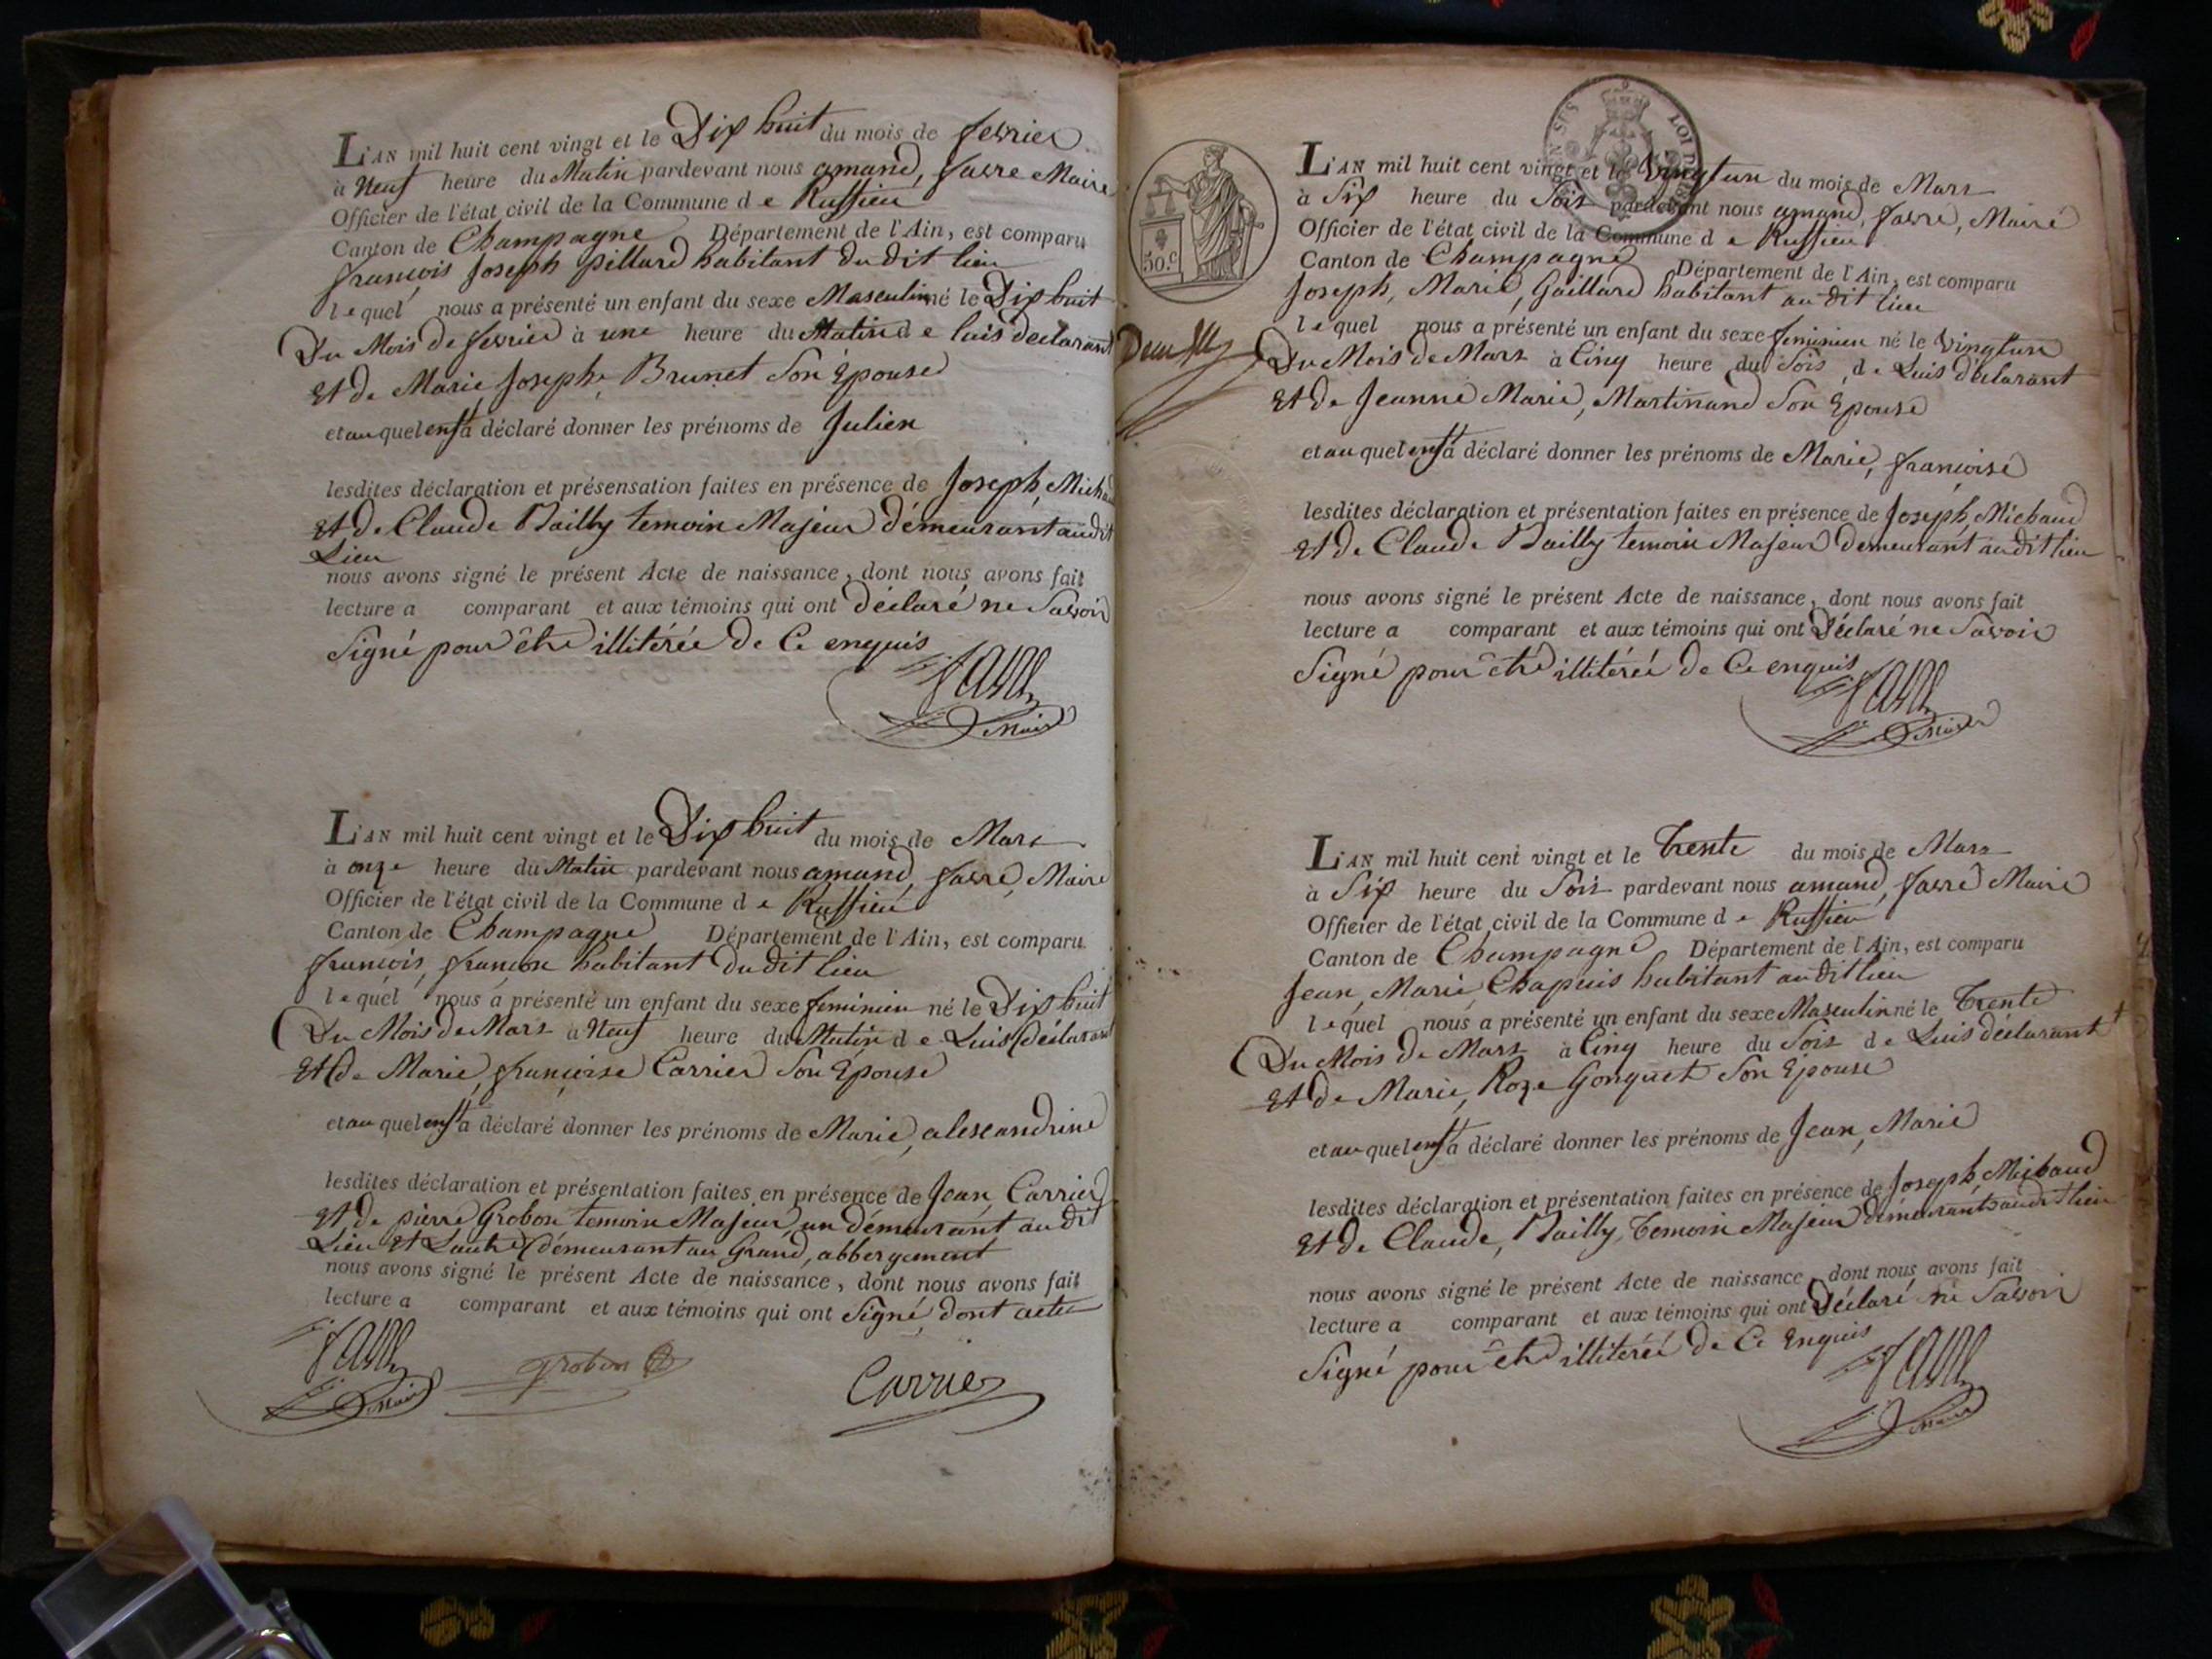 L'AN mil huit cent vingt et le Dix huit du mois de fevrier
à Neuf heure du Matin pardevant nous amand, favre Maire
Officier de l'état civil de la Commune d e Ruffieu
Canton de Champagne Département de l'Ain, est comparu
françois Joseph pillard habitant du dit lieu
l e quel nous a présenté un enfant du sexe Masculin né le Dix huit
Du Mois de fevrier à une heure du Matin d e luis declarant
Et de Marie, Josephe Brunet Son Epouse
et au quel enft a déclaré donner les prénoms de Julien
lesdites déclaration et présensation faites en présence de Joseph, Michaud
Et de Claude Bailly temoin Majeur démeurant audit
Lieu
nous avons signé le présent Acte de naissance, dont nous avons fait
lecture a comparant et aux témoins qui ont déclaré ne Savoir
Signé pour être illitérée de Ce enquis
favre
Maire
L'AN mil huit cent vingt et le Dix huit du mois de Mars
à onze heure du Matin pardevant nous amand, favre, Maire
Officier de l'état civil de la Commune d e Ruffieu
Canton de Champagne Département de l'Ain, est comparu
françois, françon habitant du dit lieu
l e quel nous a présenté un enfant du sexe feminien né le Dix huit
Du Mois de Mars à Neuf heure du Matin d e Luis déclarant
Et de Marie, françoise Carrier Son Epouse
et au quel enft a déclaré donner les prénoms de Marie, alexandrine
lesdites déclaration et présentation faites en présence de Jean, Carrier
Et de pierre Grobon temoin Majeur, un démeurant au dit
Lieu Et Lautre démeurant au Grand, abbergement
nous avons signé le présent Acte de naissance, dont nous avons fait
lecture a comparant et aux témoins qui ont Signé, dont acte
favre
Maire
Grobon
Carrier
50.c
Deux
L'AN mil huit cent vingt et le Vingt un du mois de Mars
à Six heure du Soir pardevant nous amand, favre, Maire
Officier de l'état civil de la Commune d e Ruffieu
Canton de Champagne Département de l'Ain, est comparu
Joseph, Marie, Gaillard habitant au dit lieu
l e quel nous a présenté un enfant du sexe feminien né le Vingt un
Du Mois de Mars à Cinq heure du Soir d e Luis déclarant
Et de Jeanne Marie, Martinand Son Epouse
et au quel enft a déclaré donner les prénoms de Marie, françoise
lesdites déclaration et présentation faites en présence de Joseph, Michaud
Et de Claude Bailly temoin Majeur demeurant au dit lieu
nous avons signé le présent Acte de naissance, dont nous avons fait
lecture a comparant et aux témoins qui ont Déclaré ne Savoir
Signé pour être illitérée de Ce enquis
favre
Maire
L'AN mil huit cent vingt et le Trente du mois de Mars
à Six heure du Soir pardevant nous amand, favre Maire
Officier de l'état civil de la Commune d e Ruffieu
Canton de Champagne Département de l'Ain, est comparu
Jean, Marie, Chapuis habitant au dit lieu
l e quel nous a présenté un enfant du sexe Masculin né le Trente
Du Mois de Mars à Cinq heure du Soir d e Luis déclarant
Et de Marie, Roze Gonguet Son Epouse
et au quel enft a déclaré donner les prénoms de Jean, Marie
lesdites déclaration et présentation faites en présence de Joseph, Michaud
Et de Claude, Bailly, Temoin Majeur démeurants audit lieu
nous avons signé le présent Acte de naissance, dont nous avons fait
lecture a comparant et aux témoins qui ont Déclaré ne Savoir
Signé pour être illitérée de Ce Enquis
favre
Maire